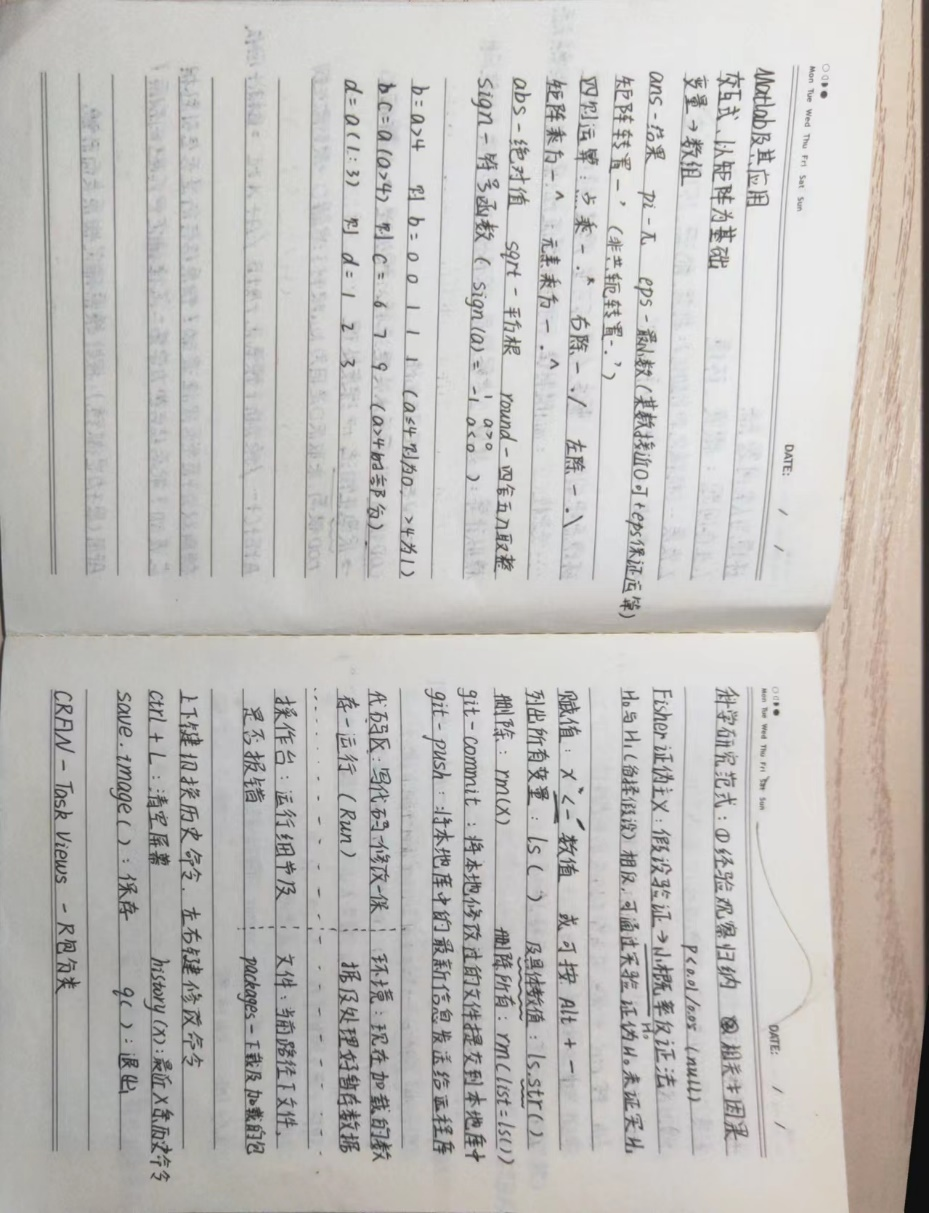 Mon Tue Wed Thu Fri Sat Sun
DATE: / /
Matlab及其应用
交互式、以矩阵为基础
变量→数组
ans-结果 pi-π eps-最小数(某数接近0可+eps保证运算)
矩阵转置-' (非共轭转置-.')
四则运算:点乘-.* 右除-./ 左除-.\
矩阵乘方-^ 元素乘方-.^
abs-绝对值 sqrt-平方根 round-四舍五入取整
sign-符号函数(sign(a)= 1 a>0 -1 a<0 )
b=a>4 则b=0 0 1 1 1(a≤4则为0, >4为1)
b c=a(a>4) 则c=6 7 9 (a>4的部分)
d=a(1:3) 则d=1 2 3
Mon Tue Wed Thu Fri Sat Sun
DATE: / /
科学研究范式:①经验观察归纳 ②相关≠因果
p<0.01/0.05 (null)
Fisher证伪主义:假设验证→小概率反证法
H₀
H₀与H₁(备择假设)相反,可通过实验证伪H₀来证实H₁
赋值:x<-数值 或可按 Alt + -
列出所有变量:ls() 及具体数值:ls.str()
删除:rm(x) 删除所有:rm(list=ls())
git-commit:将本地修改过的文件提交到本地库中
git-push:将本地库中的最新信息发送给远程库
代码区:写代码-修改-保 环境:现在加载的数
存-运行(Run) 据及处理好暂存数据
操作台:运行细节及 文件:当前路径下文件.
是否报错 packages-下载及加载的包
上下键切换历史命令,左右键修改命令
ctrl+L:清空屏幕 history(x):最近X条历史命令
save.image():保存 q():退出
CRAN-Task Views-R包分类